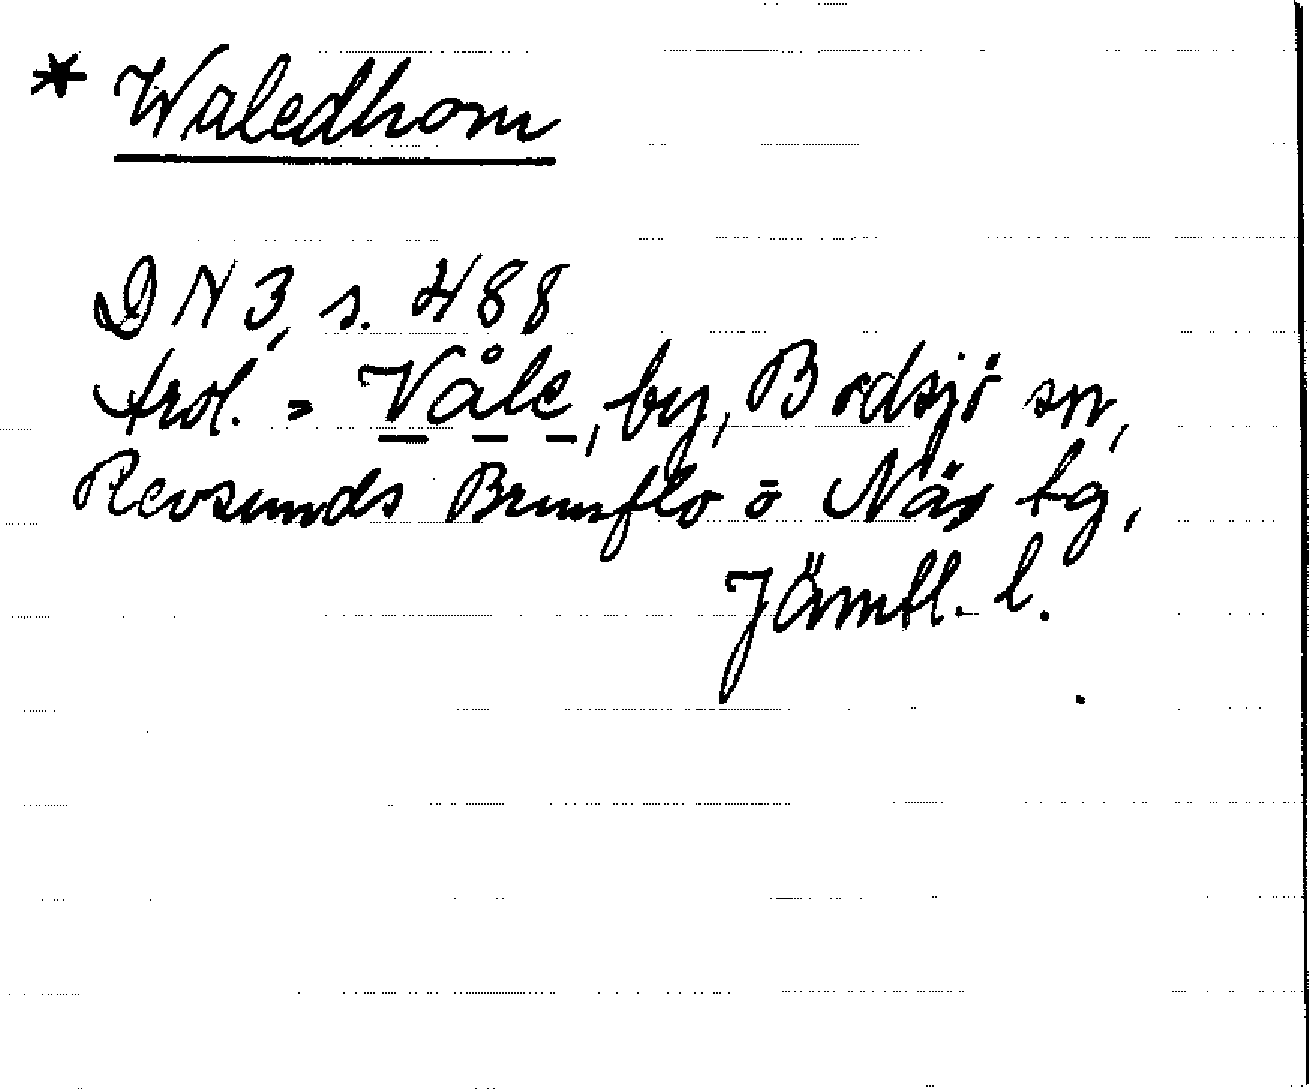 * Waledhom
DN 3, s. 488
Trol. = Våle, by, Bodsjö sn,
Revsunds Brunflo o Näs tg,
Jämtl. l.